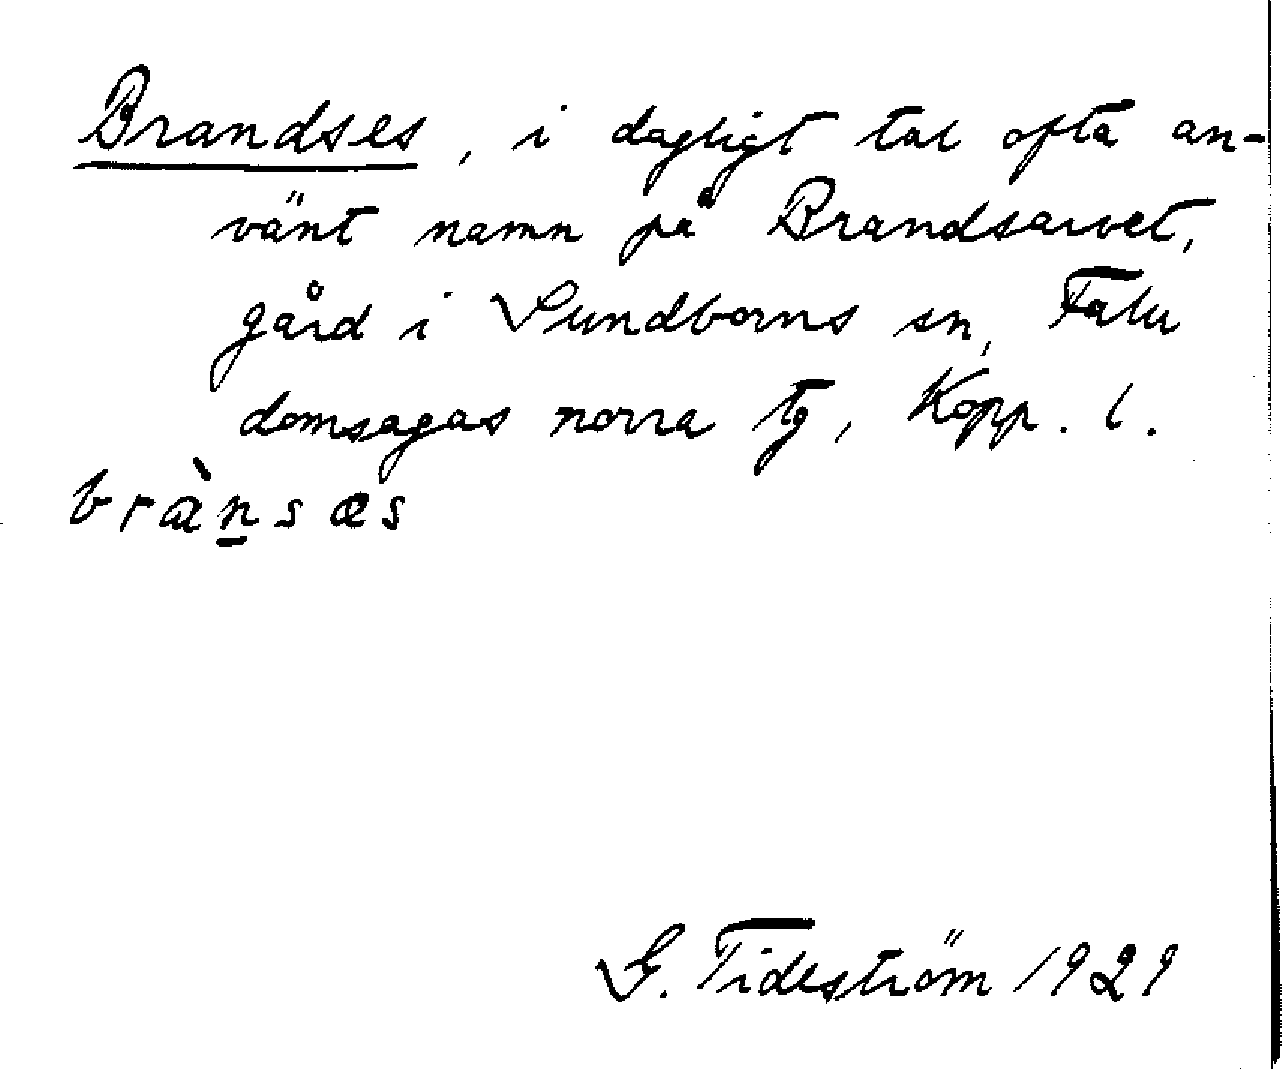 Brandses, i dagligt tal ofta an-
vänt namn på Brandsarvet,
gård i Sundborns sn, Falu
domsagas norra tg, Kopp. l.
bràn̲sæs
G. Tideström 1929